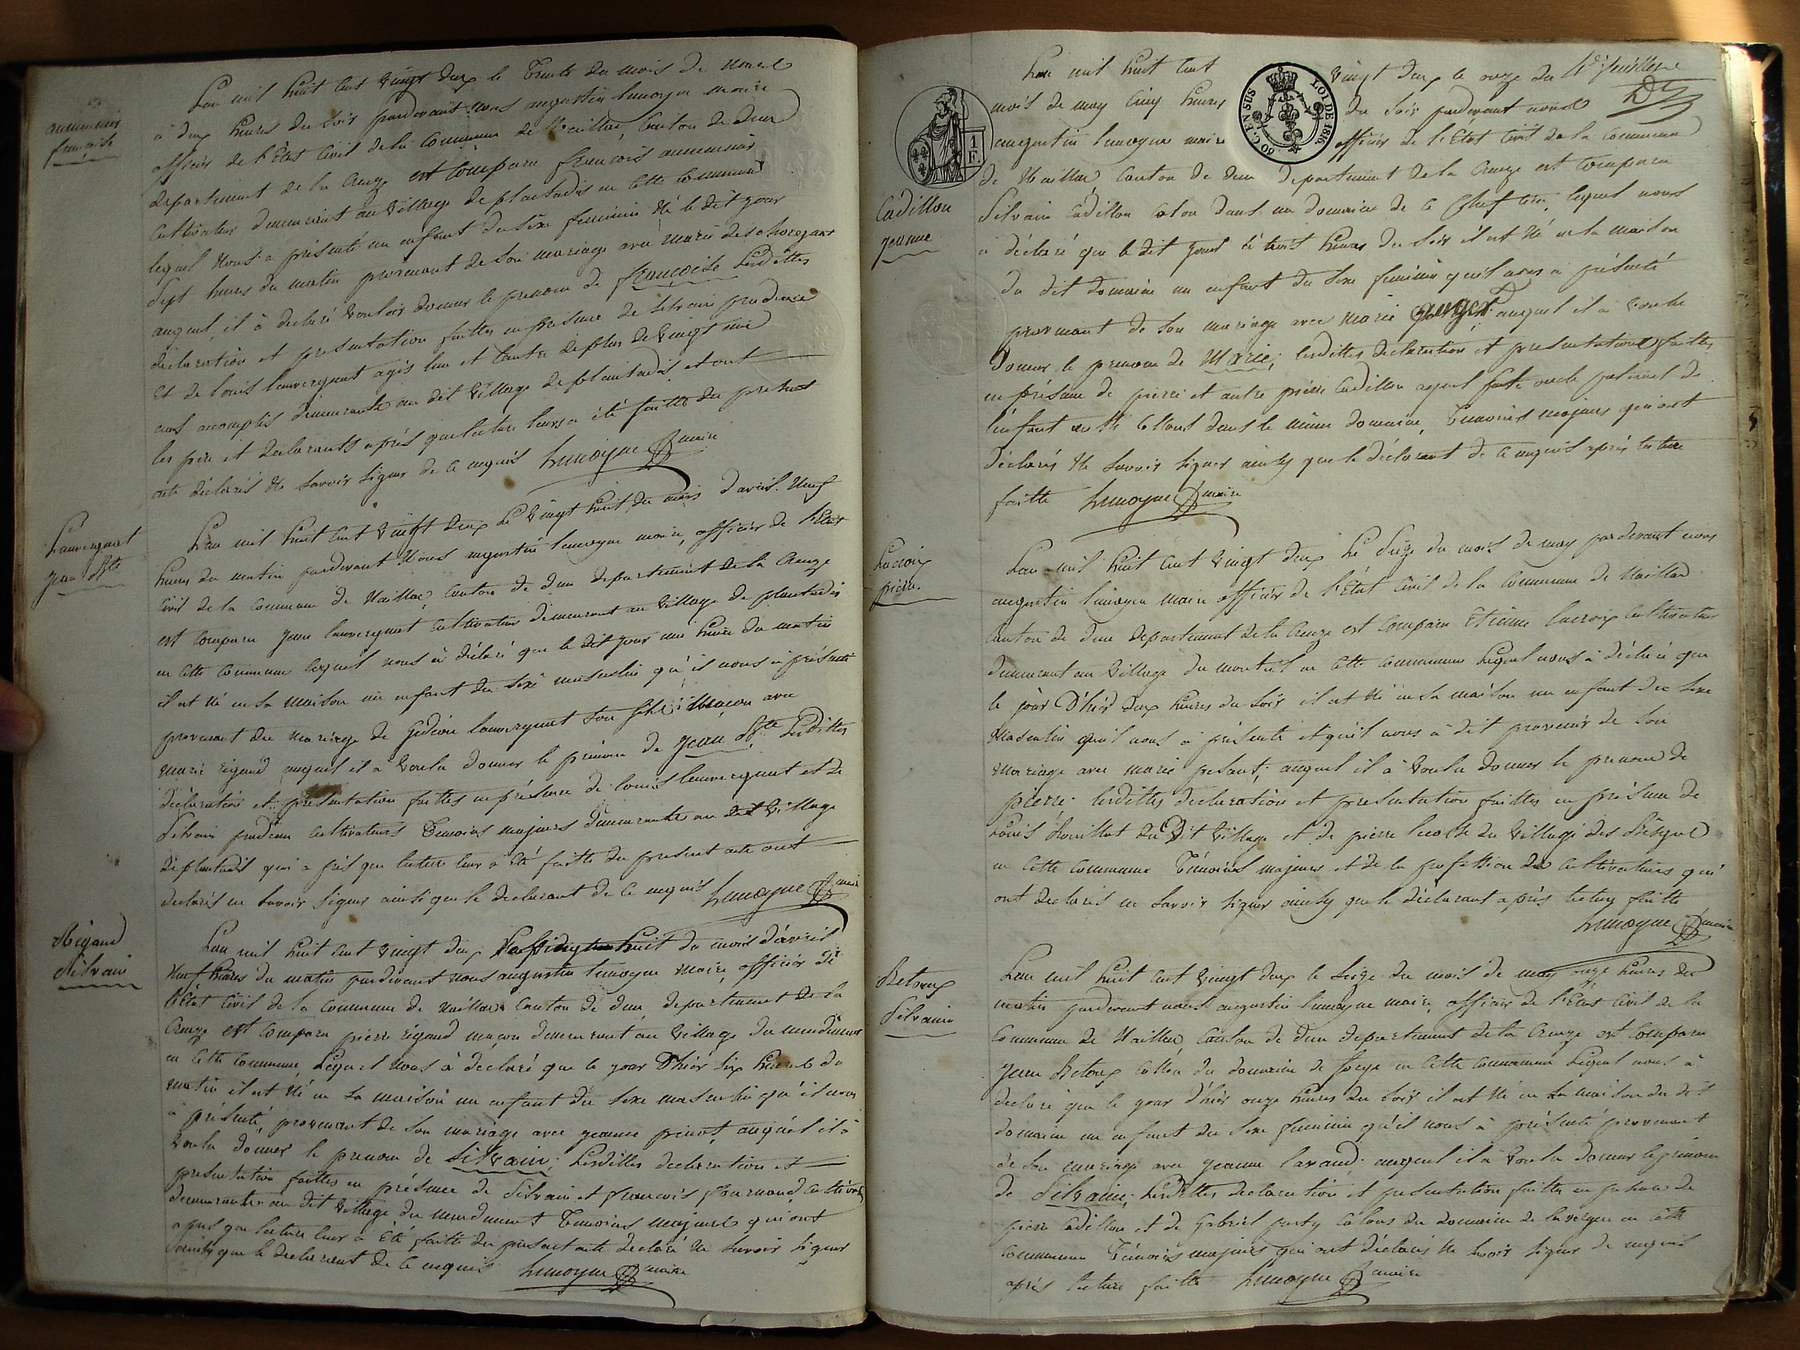 aumenier
françoise
L'an mil huit cent vingt deux le trente du mois de
à deux heures du soir pardevant nous augustin lemoyne maire
officier de l'État Civil de la Commune de Naillat, Canton de dun
département de la Creuse est comparu françois
cultivateur demeurant au village de plantadis en cette commune
lequel nous a présenté un enfant du sexe feminin né le dit jour
sept heures du matin provenant de son mariage avec marie
auquel il à déclaré vouloir donner le prenom de françoise lesdittes
déclaration et presentation faittes en presence de silvain
et de louis lauvergnat agés l'un et l'autre de plus de vingt un
ans accomplis demeurants au dit village de plantadis et ont
les père et declarants après que lecture leurs a été faitte du present
acte déclarés ne savoir signer de ce enquis lemoyne maire
Lauvergnat
jean Bte
L'an mil huit cent vingt deux le vingt huit du mois d'avril neuf
heures du matin pardevant nous augustin lemoyne maire, officier de l'État
civil de la commune de Naillat, canton de dun departement de la Creuse
est comparu jean lauvergnat cultivateur demeurant au village de plantadis
en cette commune lequel nous à déclaré que le dit jour une heure du matin
il est né en sa maison un enfant du sexe masculin qu'il nous à présenté
provenant du mariage de Gedeon lauvergnat son fils maçon avec
marie rigaud auquel il à voulu donner le prénom de jean Bte lesdittes
déclaration et présentation faittes en présence de louis lauvergnat et de
silvain cultivateurs temoins majeurs demeurants au dit village
de plantadis qui après que lecture leur a été faitte du present acte ont
declarés ne savoir signer ainsi que le declarant de ce enquis lemoyne maire
Rigaud
silvain
L'an mil huit cent vingt deux huit du mois d'avril
neuf heures du matin pardevant nous augustin lemoyne maire, officier de
l'État civil de la commune de naillat canton de dun, departement de la
Creuse est comparu pierre rigaud maçon demeurant au village du
en cette commune, lequel nous à declaré que le jour d'hier six heures du
matin il est né en sa maison un enfant du sexe masculin qu'il nous
à présenté, provenant de son mariage avec jeanne auquel il à
voulu donner le prenom de Silvain; lesdittes declaration et
presentation faittes en présence de Silvain et françois
demeurants au dit village du temoins majeurs qui ont
apres que lecture leur a été faitte du present acte declaré ne savoir signer
ainsy que le declarant de ce enquis lemoyne maire
1 F.
60 C. EN SUS
LOI DE 1816
L'an mil huit cent vingt deux le onze du
mois de may cinq heures du soir pardevant nous
augustin lemoyne maire officier de l'État Civil de la commune
de Naillat canton de dun departement de la Creuse est comparu
Cadillon
jeanne
Silvain Cadillon colon dans un domaine de ce lequel nous
à déclaré que le dit jour à trois heures du soir il est né en la maison
du dit domaine un enfant du sexe feminin qu'il nous à présenté
provenant de son mariage avec Marie auquel il à voulu
donner le prenom de Marie; lesdittes declaration et presentation faittes
en présence de pierre et autre pierre Cadillon oncle paternel de
l'enfant collons dans le même domaine, temoins majeurs qui ont
déclarés ne savoir signer ainsy que le déclarant de ce enquis après lecture
faitte lemoyne maire
Lacroix
pierre
L'an mil huit cent vingt deux le seize du mois de may pardevant nous
augustin lemoyne maire officier de l'État civil de la commune de Naillat
canton de dun departement de la Creuse est comparu Etienne lacroix cultivateur
demeurant au village du en cette commune lequel nous à déclaré que
le jour d'hier deux heures du soir il est né en sa maison un enfant du sexe
masculin qu'il nous à présenté et qu'il nous à dit provenir de son
mariage avec marie auquel il à voulu donner le prenom de
pierre lesdittes declaration et presentation faittes en présence de
Louis du dit village et de pierre du village des
en cette commune temoins majeurs et de la profession de cultivateurs qui
ont declarés ne savoir signer ainsy que le déclarant après lecture faitte
lemoyne maire
Betoux
Silvaine
L'an mil huit cent vingt deux le seize du mois de may onze heures du
matin pardevant nous augustin lemoyne maire, officier de l'État civil de la
commune de Naillat, canton de dun departement de la Creuse est comparu
jean Betoux collon du domaine de en cette commune lequel nous à
declaré que le jour d'hier onze heures du soir il est né en la maison du dit
domaine un enfant du sexe feminin qu'il nous à présenté provenant
de son mariage avec jeanne lavaud, auquel il à voulu donner le prenom
de Silvaine; lesdittes declaration et presentation faittes en présence de
pierre Cadillon et de Gabriel colons du domaine de en cette
commune temoins majeurs qui ont déclarés ne savoir signer de enquis
après lecture faitte lemoyne maire